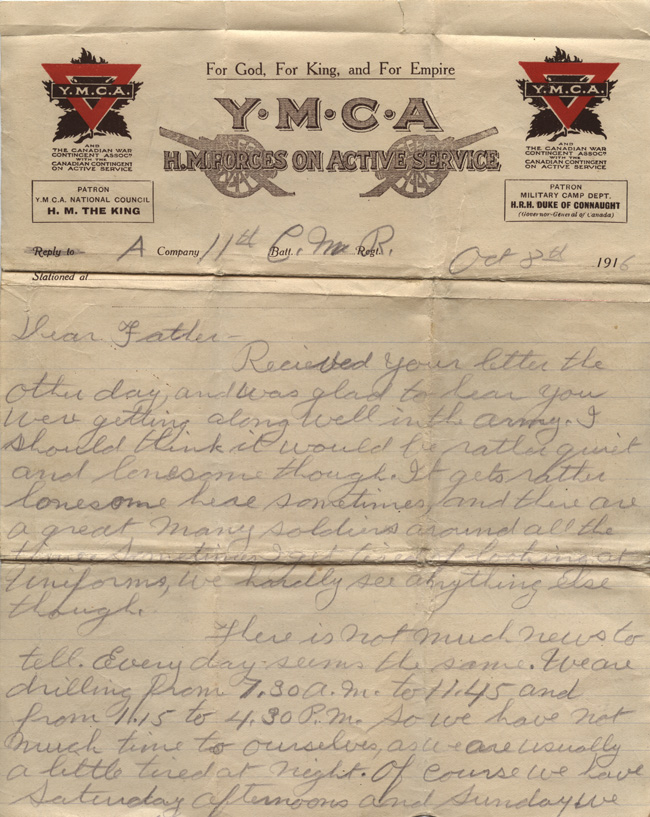 For God, For King, and For Empire
Y.M.C.A.
Y·M·C·A
Y.M.C.A.
AND
THE CANADIAN WAR
CONTINGENT ASSOCN
WITH THE
CANADIAN CONTINGENT
ON ACTIVE SERVICE
H.M. FORCES ON ACTIVE SERVICE
AND
THE CANADIAN WAR
CONTINGENT ASSOCN
WITH THE
CANADIAN CONTINGENT
ON ACTIVE SERVICE
PATRON
Y.M.C.A. NATIONAL COUNCIL
H. M. THE KING
PATRON
MILITARY CAMP DEPT.
H.R.H. DUKE OF CONNAUGHT
(Governor-General of Canada)
Reply to A Company 11th Batt. C.M.R. Regt. Oct 8th 1916
Stationed at
Dear Father –
Recieved your letter the
other day, and was glad to hear you
were getting along well in the army. I
should think it would be rather quiet
and lonesome though. It gets rather
lonesome here sometimes, and there are
a great many soldiers around all the
time. Sometimes I get tired of looking at
uniforms, we hardly see anything else
though.
There is not much news to
tell. Every day seems the same. We are
drilling from 7.30 A.M. to 11.45 and
from 1.15 to 4.30 P.M. so we have not
much time to ourselves, as we are usually
a little tired at night. Of course we have
Saturday afternoons and Sunday we